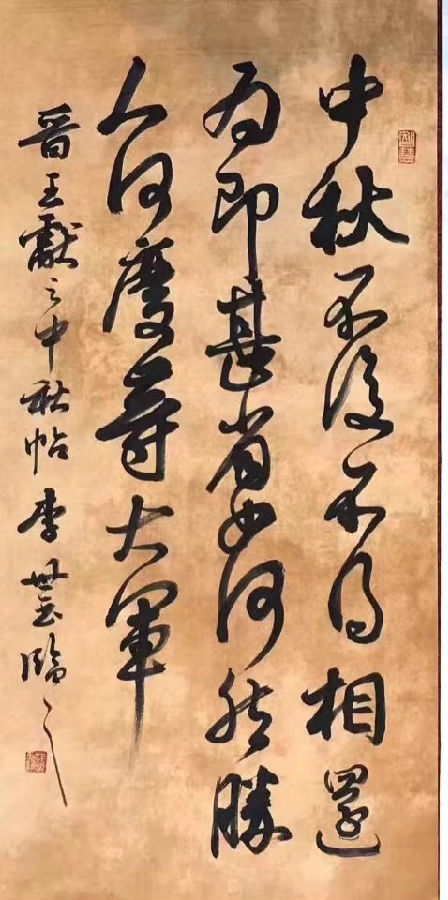 中秋不復不得相還
為即甚省如何然勝
人何慶等大軍
晉王獻之中秋帖 李世臨之